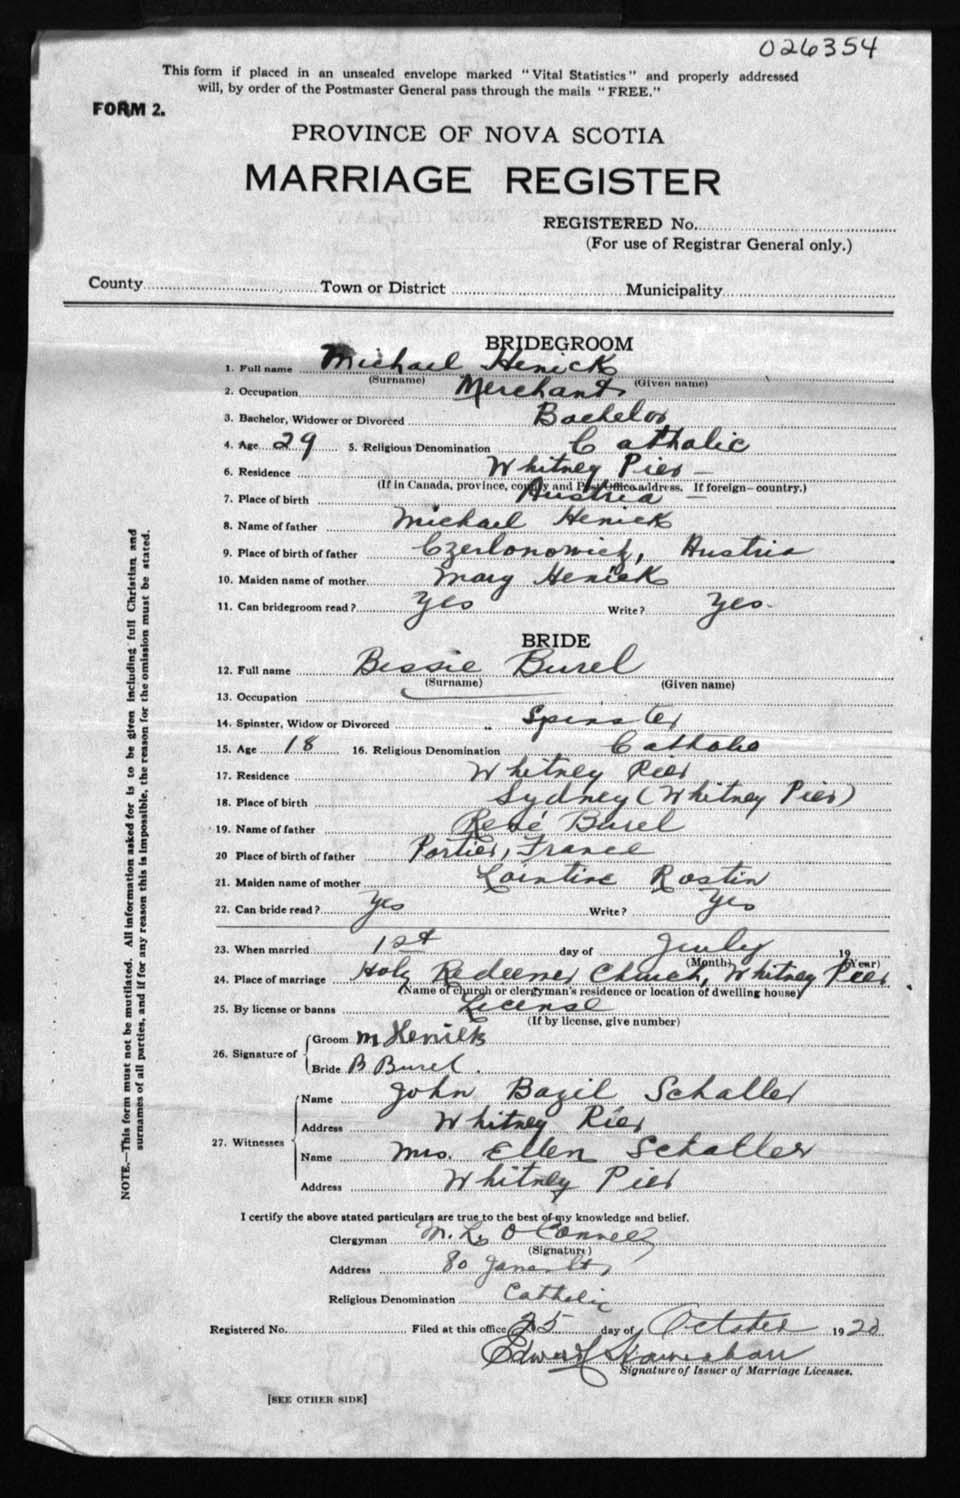 026354
This form if placed in an unsealed envelope marked "Vital Statistics" and properly addressed
will, by order of the Postmaster General pass through the mails "FREE."
FORM 2.
PROVINCE OF NOVA SCOTIA
MARRIAGE REGISTER
REGISTERED No.
(For use of Registrar General only.)
County Town or District Municipality
BRIDEGROOM
1. Full name Michael Henick
(Surname) (Given name)
2. Occupation Merchant
3. Bachelor, Widower or Divorced Bachelor
4. Age 29 5. Religious Denomination Catholic
6. Residence Whitney Pier
(If in Canada, province, county and Post Office address. If foreign—country.)
7. Place of birth Austria
8. Name of father Michael Henick
9. Place of birth of father Austria
10. Maiden name of mother Mary Henick
11. Can bridegroom read? Yes Write? Yes
BRIDE
12. Full name Bessie Burel
(Surname) (Given name)
13. Occupation
14. Spinster, Widow or Divorced Spinster
15. Age 18 16. Religious Denomination Catholic
17. Residence Whitney Pier
18. Place of birth Sydney (Whitney Pier)
19. Name of father René Burel
20 Place of birth of father France
21. Maiden name of mother Rostin
22. Can bride read? Yes Write? Yes
23. When married 1st day of July 19
(Month) (Year)
24. Place of marriage Holy Redeemer Church, Whitney Pier
(Name of church or clergyman's residence or location of dwelling house)
25. By license or banns License
(If by license, give number)
26. Signature of Groom M Henick
Bride B Burel.
27. Witnesses Name John Bazil Schaller
Address Whitney Pier
Name Mrs. Ellen Schaller
Address Whitney Pier
I certify the above stated particulars are true to the best of my knowledge and belief.
Clergyman M. O'Connell
(Signature)
Address 80 St,
Religious Denomination Catholic
Registered No. Filed at this office 25 day of October 1920
Edward
Signature of Issuer of Marriage Licenses.
[SEE OTHER SIDE]
NOTE.—This form must not be mutilated. All information asked for is to be given including full Christian and
surnames of all parties, and if for any reason this is impossible, the reason for the omission must be stated.